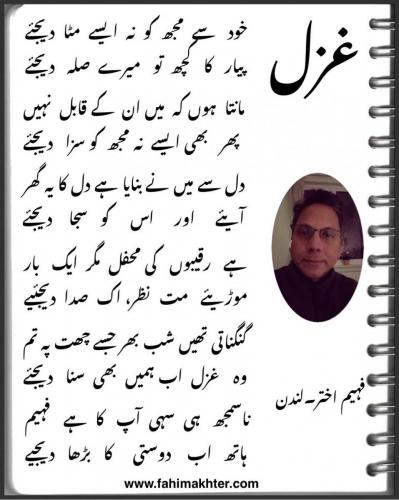 غزل
خود سے مجھ کو نہ ایسے مٹا دیجئے
پیار کا کچھ تو میرے صلہ دیجئے
مانتا ہوں کہ میں ان کے قابل نہیں
پھر بھی ایسے نہ مجھ کو سزا دیجئے
دل سے میں نے بنایا ہے دل کا یہ گھر
آیئے اور اس کو سجا دیجئے
ہے رقیبوں کی محفل مگر ایک بار
موڑیئے مت نظر، اک صدا دیجئیے
گنگناتی تھیں شب بھر جسے چھت پہ تم
وہ غزل اب ہمیں بھی سنا دیجئے
ناسمجھ ہی سہی آپ کا ہے فہیم
ہاتھ اب دوستی کا بڑھا دیجیے
فہیم اختر۔لندن
www.fahimakhter.com